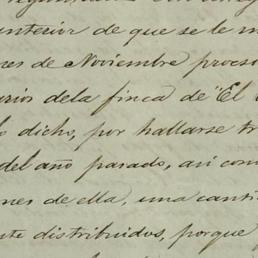 anterior de que se le
mes de Noviembre
dela finca de "El
dicho, por hallarse
del año pasado, asi com
nes de ella, una canti
te distribuidos, porque